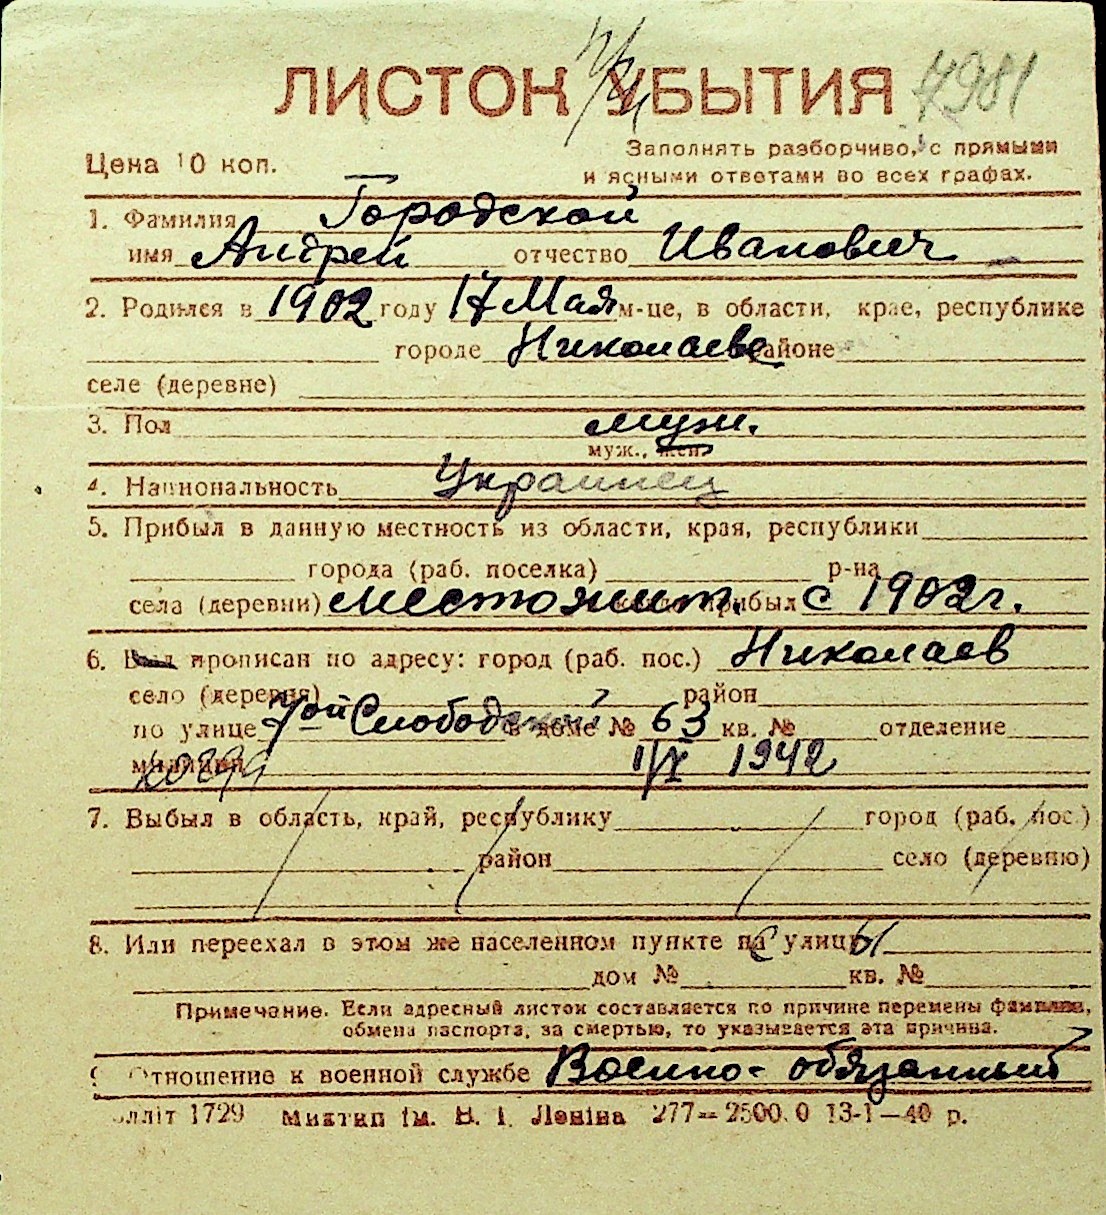 ЛИСТОК УБЫТИЯ 7981
Цена 10 коп.
Заполнять разборчиво, с прямыми
и ясными ответами во всех графах.
1. Фамилия Городской
имя Андрей отчество Иванович
2. Родился в 1902 году 17 Мая м-це, в области, крае, республике
городе Николаеве районе
селе (деревне)
3. Пол муж.
муж., жен.
4. Национальность Украинец
5. Прибыл в данную местность из области, края, республики
города (раб. поселка) р-на
села (деревни) местожит. прибыл с 1902 г.
6. Был прописан по адресу: город (раб. пос.) Николаев
село (деревня) район
по улице 7ой Слободской в доме № 63 кв. № отделение
милиции 1/IX 1942
7. Выбыл в область, край, республику город (раб. пос.)
район село (деревню)
8. Или переехал в этом же населенном пункте на улицу
дом № кв. №
Примечание. Если адресный листок составляется по причине перемены фамилии,
обмена паспорта, за смертью, то указывается эта причина.
Отношение к военной службе Военно-обязанный
1729 Миктип ім. В. І. Леніна 277—2500.0 13-1—40 р.